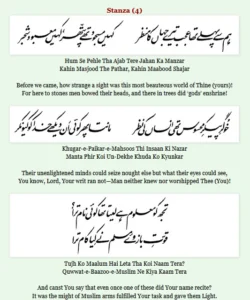 Stanza (4)
ہم سے پہلے تھا عجب تیرے جہاں کا منظر
کہیں مسجود تھے پتھر، کہیں معبود شجر
Hum Se Pehle Tha Ajab Tere Jahan Ka Manzar
Kahin Masjood The Pathar, Kahin Maabood Shajar
Before we came, how strange a sight was this most beauteous world of Thine (yours)!
For here to stones men bowed their heads, and there in trees did 'gods' enshrine!
خوگرِ پیکرِ محسوس تھی انساں کی نظر
مانتا پھر کوئی ان دیکھے خدا کو کیونکر
Khugar-e-Paikar-e-Mahsoos Thi Insaan Ki Nazar
Manta Phir Koi Un-Dekhe Khuda Ko Kyunkar
Their unenlightened minds could seize nought else but what their eyes could see,
You know, Lord, Your writ ran not—Man neither knew nor worshipped Thee (You)!
تجھ کو معلوم ہے لیتا تھا کوئی نام ترا؟
قوتِ بازوئے مسلم نے کیا کام ترا
Tujh Ko Maalum Hai Leta Tha Koi Naam Tera?
Quwwat-e-Baazoo-e-Muslim Ne Kiya Kaam Tera
And canst You say that even once one of these did Your name recite?
It was the might of Muslim arms fulfilled Your task and gave them Light.